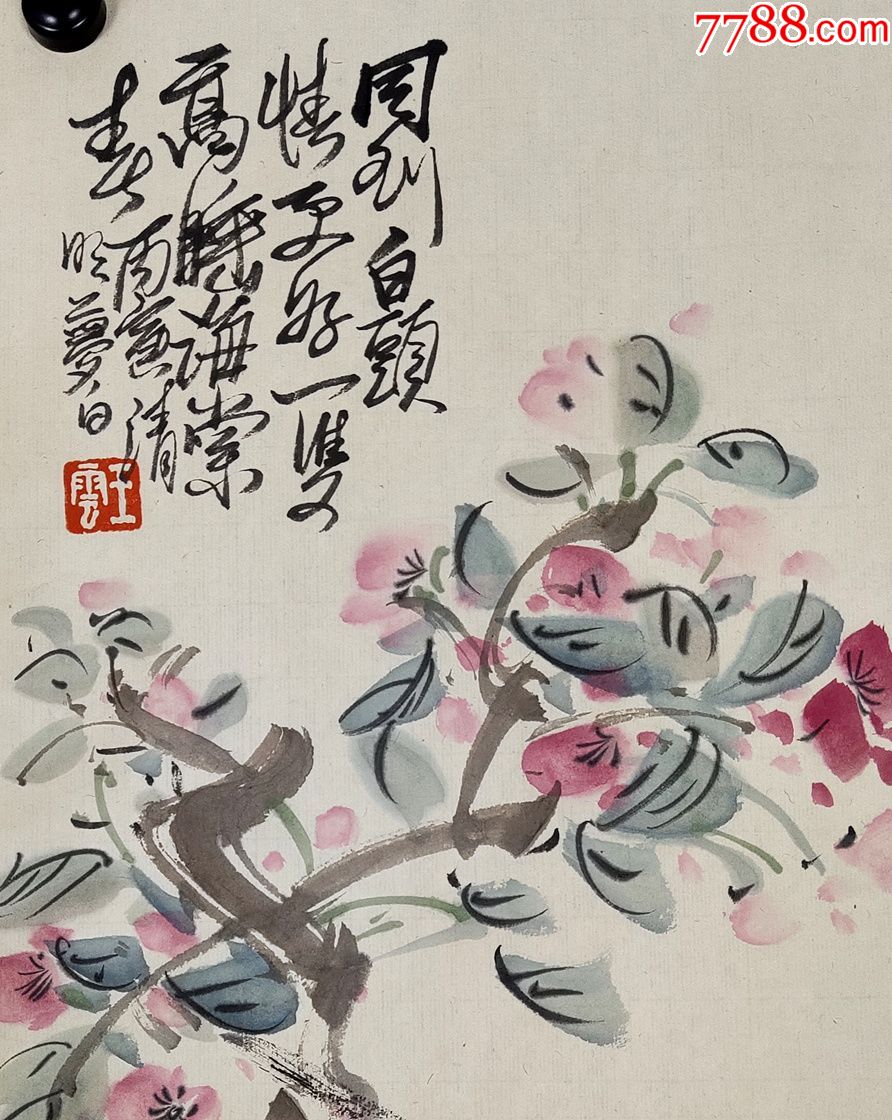 7788.com
同到白頭
情更好一雙
高睡海棠
春丙寅清
明夢白
王雲